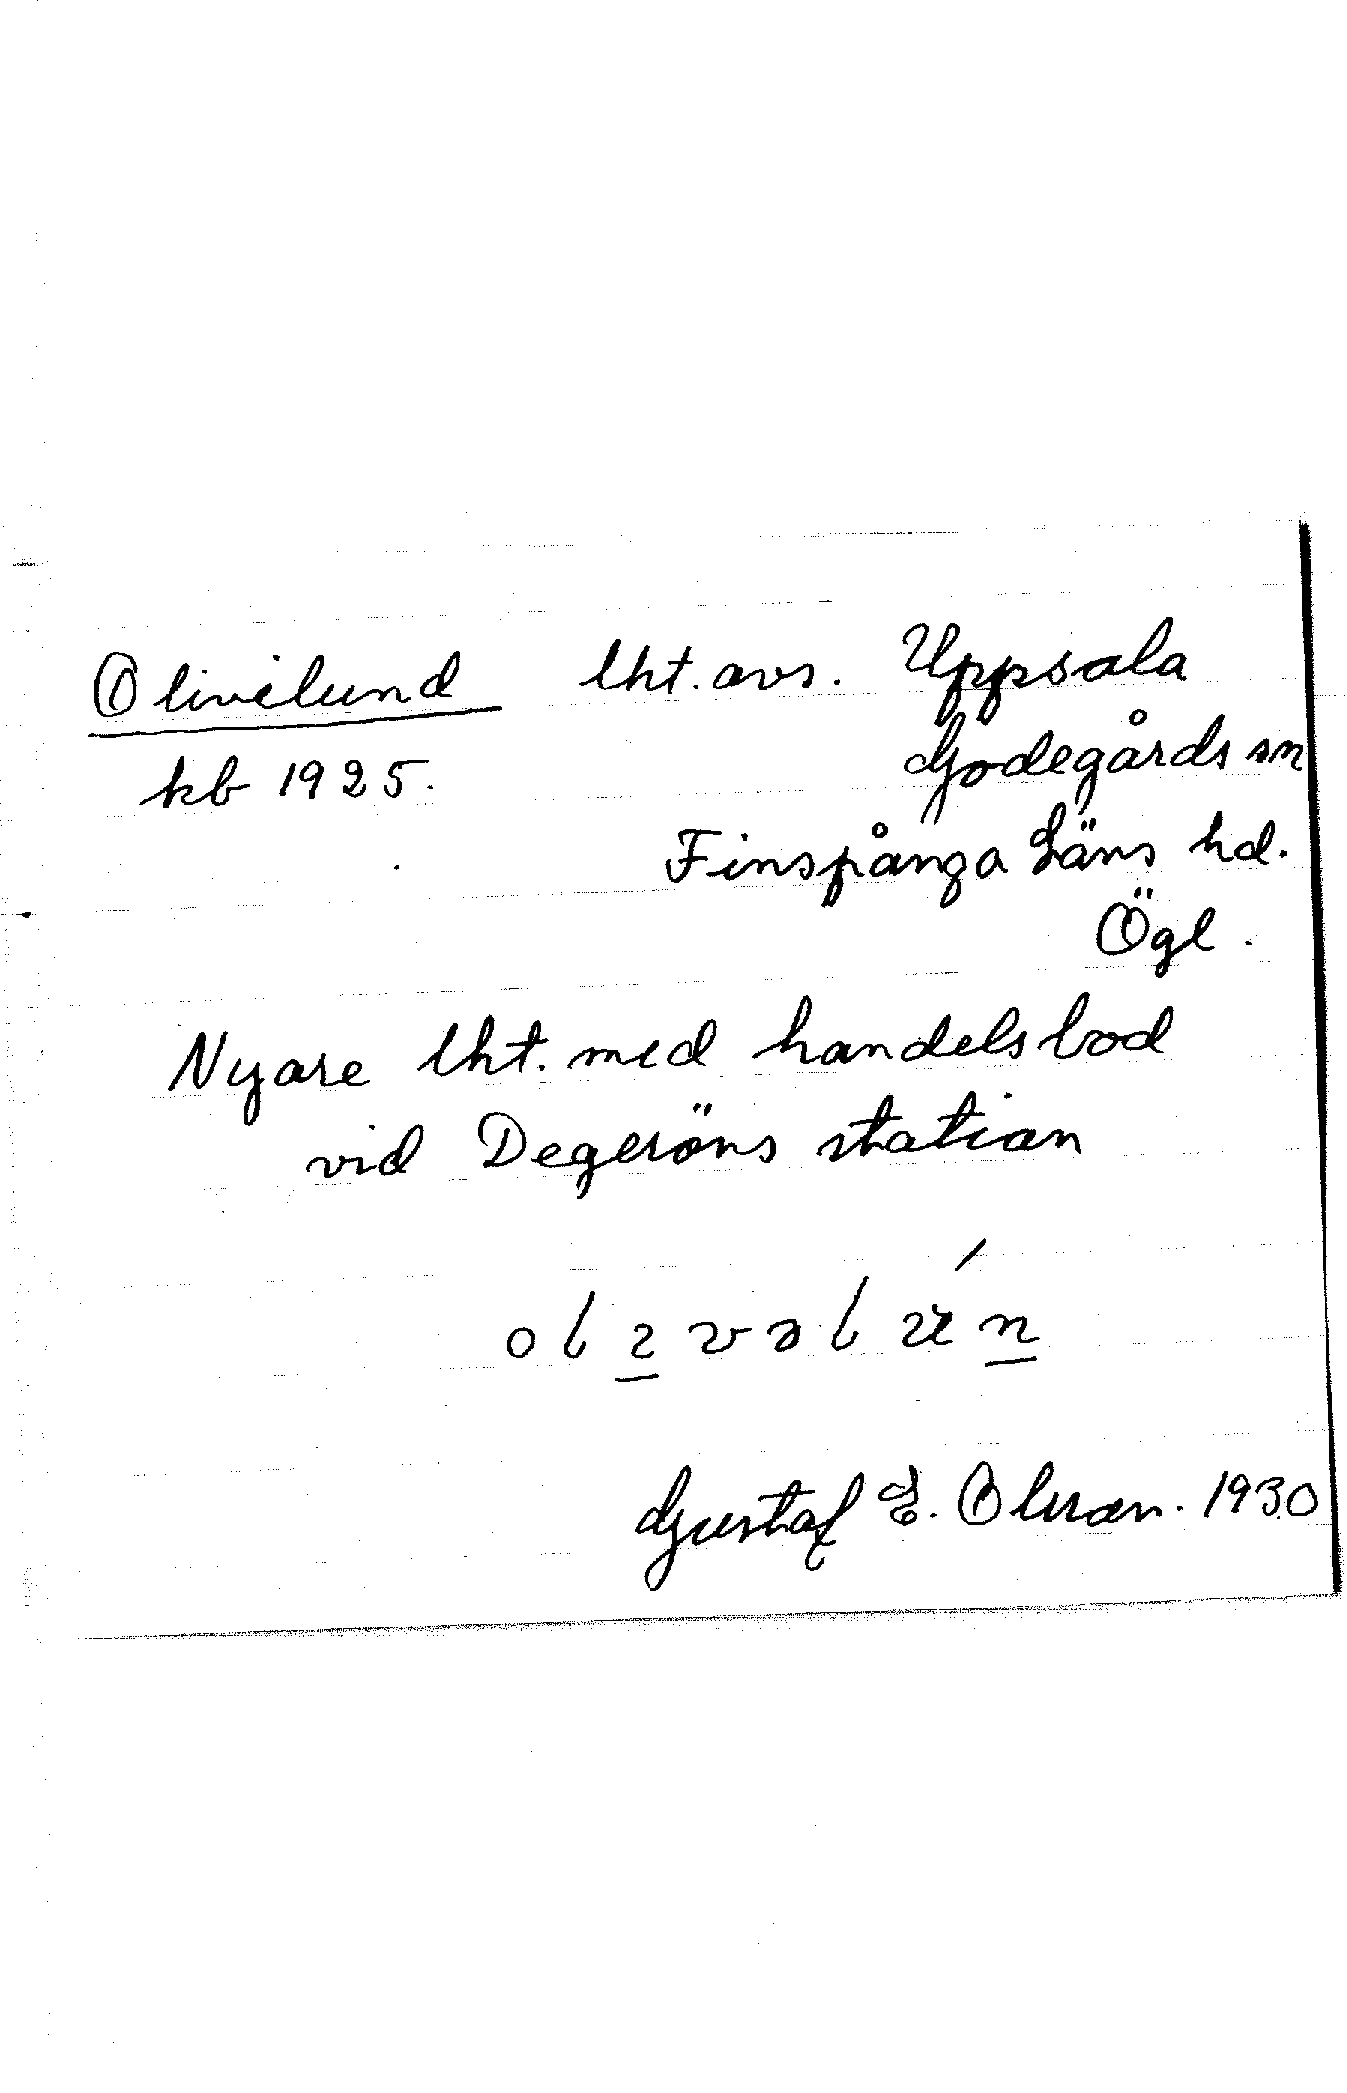 Olivelund lht. avs. Uppsala
kb 1925. Godegårds sn
Finspånga Läns hd.
Ögl.
Nyare lht. med handelsbod
vid Degeröns station
Gustaf E. Olsson. 1930